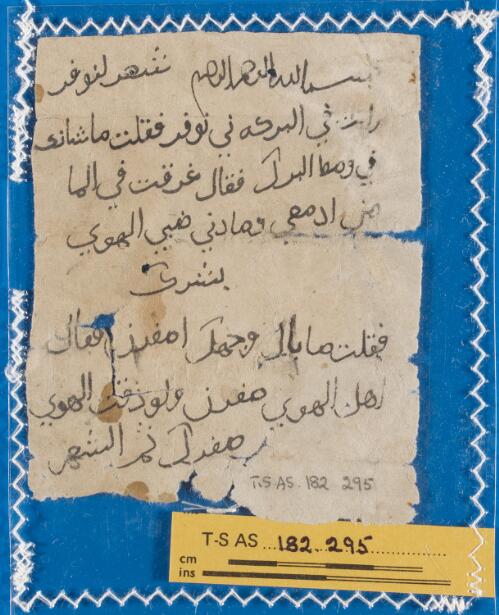 بسم الله الرحمن الرحيم شعر لنوفر
رايت في البركه ني نوفر فقلت ما شانك
في وسط البرك فقال غرقت في الما
من ادمعي وصادني ضبي الهوي
بشرك
فقلت ما بال وجهك اصفر فقال
اهل الهوي صفر ولو ذقت الهوي
صفرك تم الشعر
T-S AS 182 295
T-S AS 182.295
cm
ins